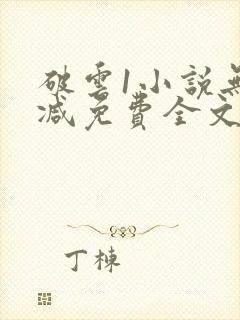 破雲1小說無
減免費全文
丁棟